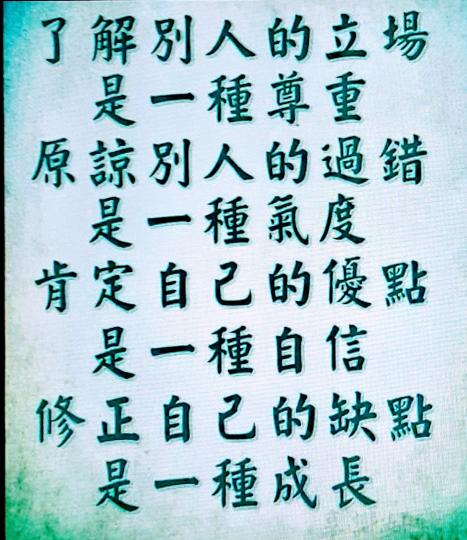 了解別人的立場
是一種尊重
原諒別人的過錯
是一種氣度
肯定自己的優點
是一種自信
修正自己的缺點
是一種成長